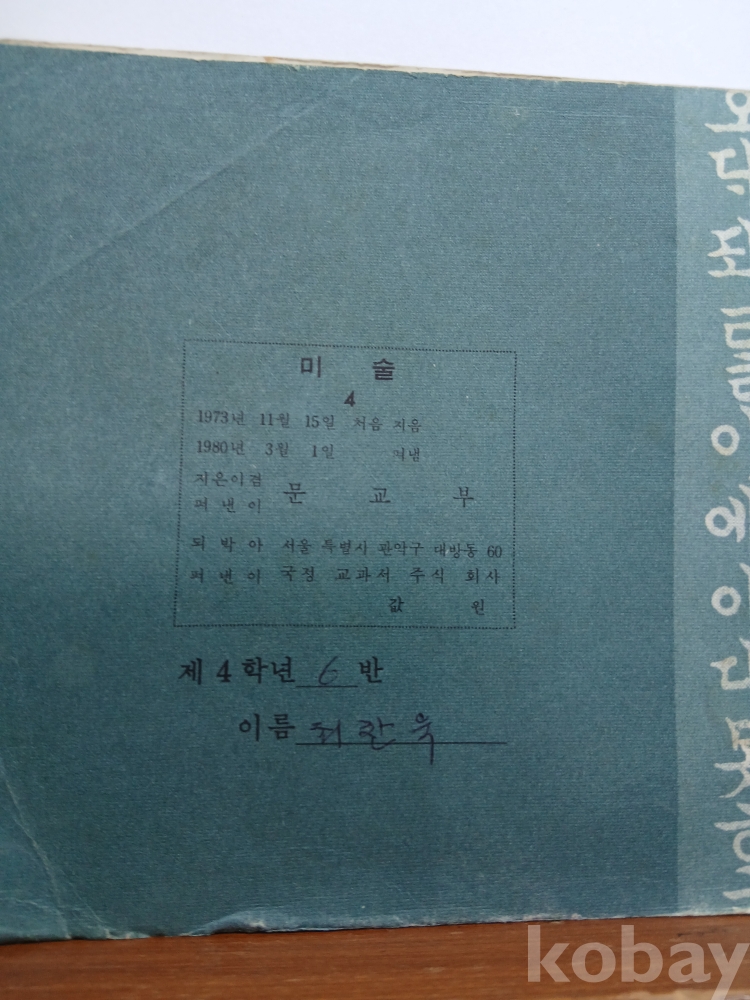 미 술
4
1973년 11월 15일 처음 지음
1980년 3월 1일 펴냄
지은이겸
펴 낸 이
문 교 부
되 박 아 서울 특별시 관악구 대방동 60
펴 낸 이 국정 교과서 주식 회사
값 원
제 4 학년 6 반
이름 최 란 욱
kobay